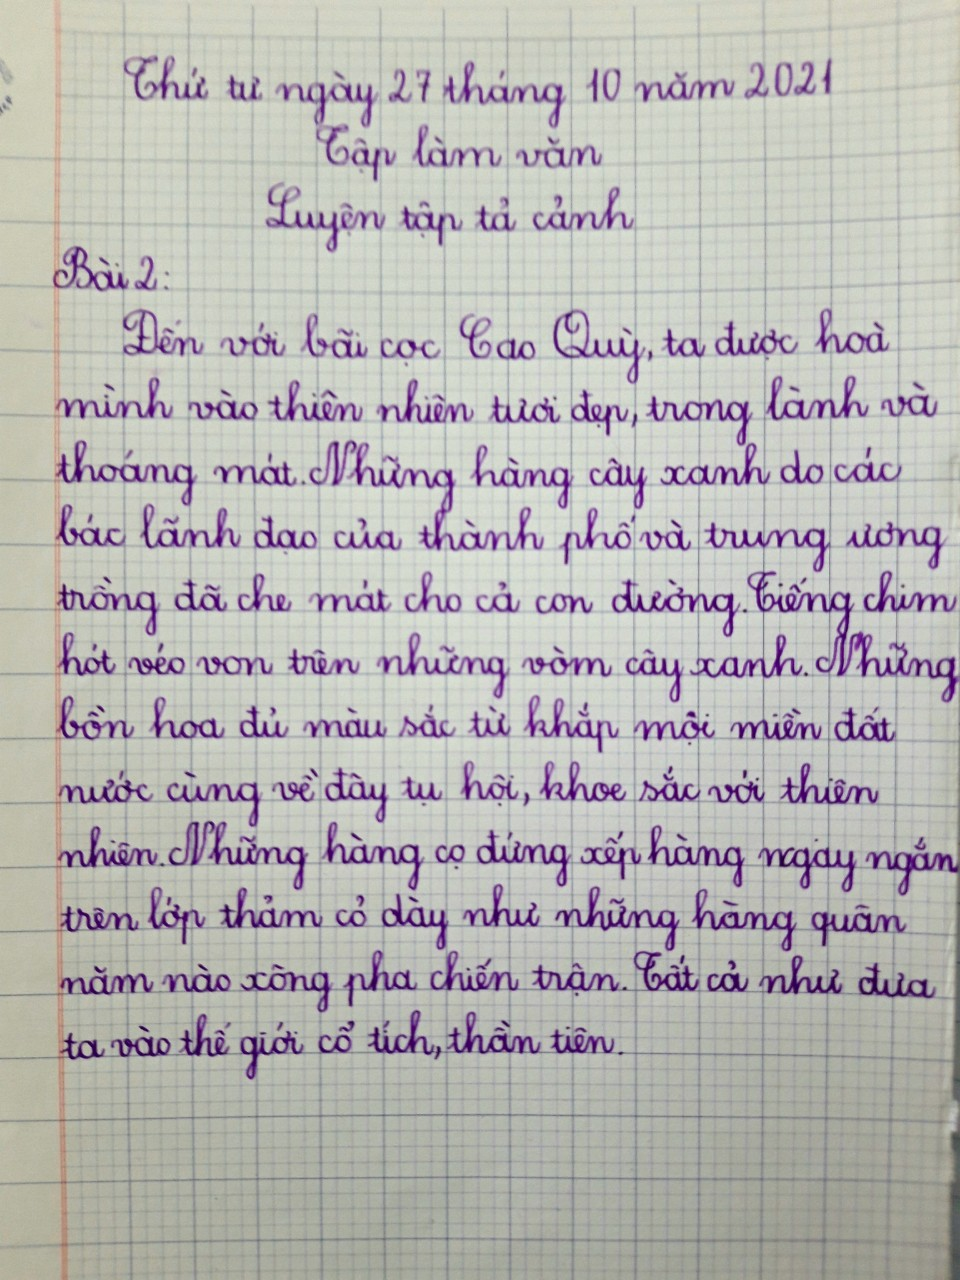 Thứ tư ngày 27 tháng 10 năm 2021
Tập làm văn
Luyện tập tả cảnh
Bài 2:
Đến với bãi cọc Cao Quỳ, ta được hoà
mình vào thiên nhiên tươi đẹp, trong lành và
thoáng mát. Những hàng cây xanh do các
bác lãnh đạo của thành phố và trung ương
trồng đã che mát cho cả con đường. Tiếng chim
hót véo von trên những vòm cây xanh. Những
bồn hoa đủ màu sắc từ khắp mội miền đất
nước cùng về đây tụ hội, khoe sắc với thiên
nhiên. Những hàng cọ đứng xếp hàng ngay ngắn
trên lớp thảm cỏ dày như những hàng quân
năm nào xông pha chiến trận. Tất cả như đưa
ta vào thế giới cổ tích, thần tiên.